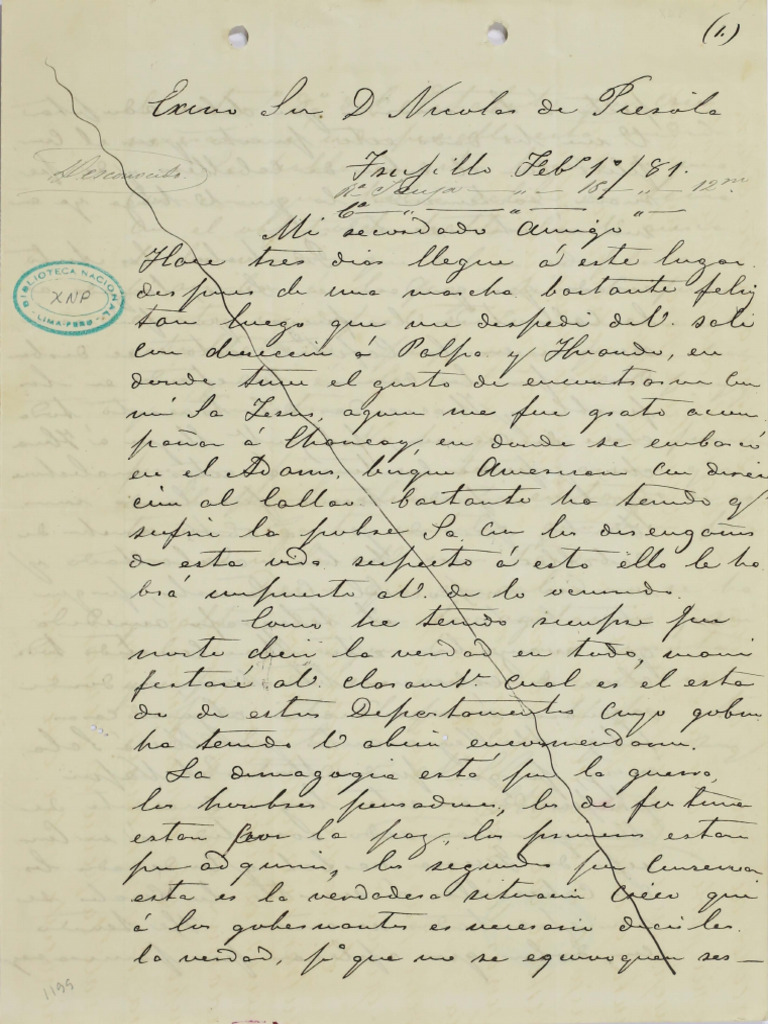 (1.)
Excmo Sor. D Nicolas de Pierola
Desconocido.
Trujillo Febo 1o/81.
Ra Jauja — " — 15/ " — 12m
Ca — " — " — " —
Mi recordado Amigo
Hace tres dias llegue á este lugar
despues de una marcha bastante feliz
tan luego que me despedi de V. sali
con direccion á Palpa y Huando, en
donde tuve el gusto de encontrarme con
mi Sa Jesus, aquien me fue grato acom
pañar á Chancay, en donde se embarcó
en el Adams, buque Americano con direc
cion al Callao. bastante ha tenido q/
sufrir la pobre Sa con los desengaños
de esta vida respecto á esto ella le ha
brá impuesto aV. de lo ocurrido.
Como he tenido siempre por
norte decir la verdad en todo, mani
festaré aV. claramte. cual es el esta
do de estos Departamentos cuyo gobno.
ha tenido V abien encomendarme.
La demagogia está por la guerra,
los hombres pensadores, los de fortuna
estan por la paz, los primeros estan
por adquirir, los segundos por conservar
esta es la verdadera situacion creeo que
á los gobernantes es necesario decirles
la verdad, pa que no se equivoquen res—
BIBLIOTECA NACIONAL
XNP
LIMA-PERU
1195